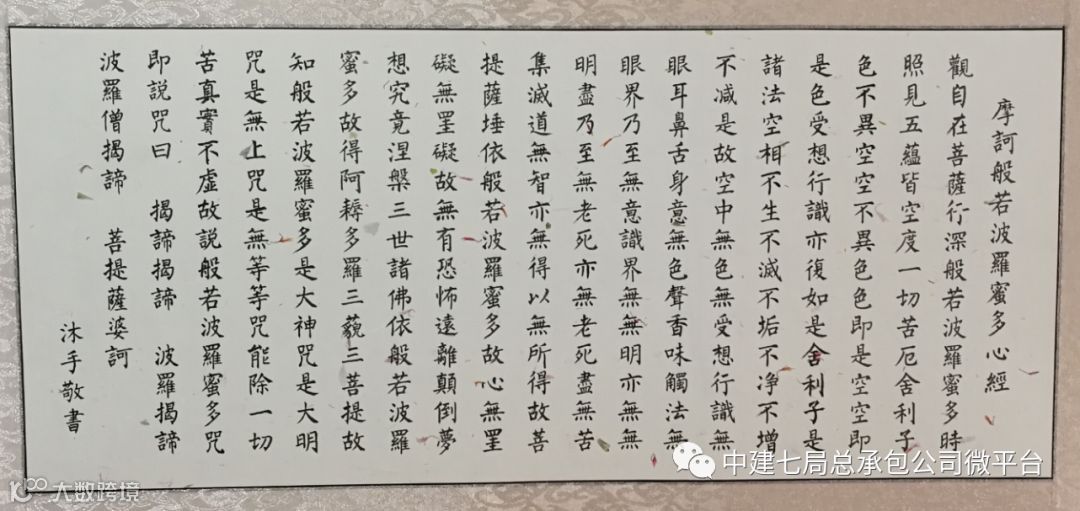 摩訶般若波羅蜜多心經
觀自在菩薩行深般若波羅蜜多時
照見五蘊皆空度一切苦厄舍利子
色不異空空不異色色即是空空即
是色受想行識亦復如是舍利子是
諸法空相不生不滅不垢不净不增
不减是故空中無色無受想行識無
眼耳鼻舌身意無色聲香味觸法無
眼界乃至無意識界無無明亦無無
明盡乃至無老死亦無老死盡無苦
集滅道無智亦無得以無所得故菩
提薩埵依般若波羅蜜多故心無罣
礙無罣礙故無有恐怖遠離顛倒夢
想究竟涅槃三世諸佛依般若波羅
蜜多故得阿耨多羅三藐三菩提故
知般若波羅蜜多是大神咒是大明
咒是無上咒是無等等咒能除一切
苦真實不虛故説般若波羅蜜多咒
即説咒曰 揭諦揭諦 波羅揭諦
波羅僧揭諦 菩提薩婆訶
沐手敬書
中建七局总承包公司微平台
大数跨境